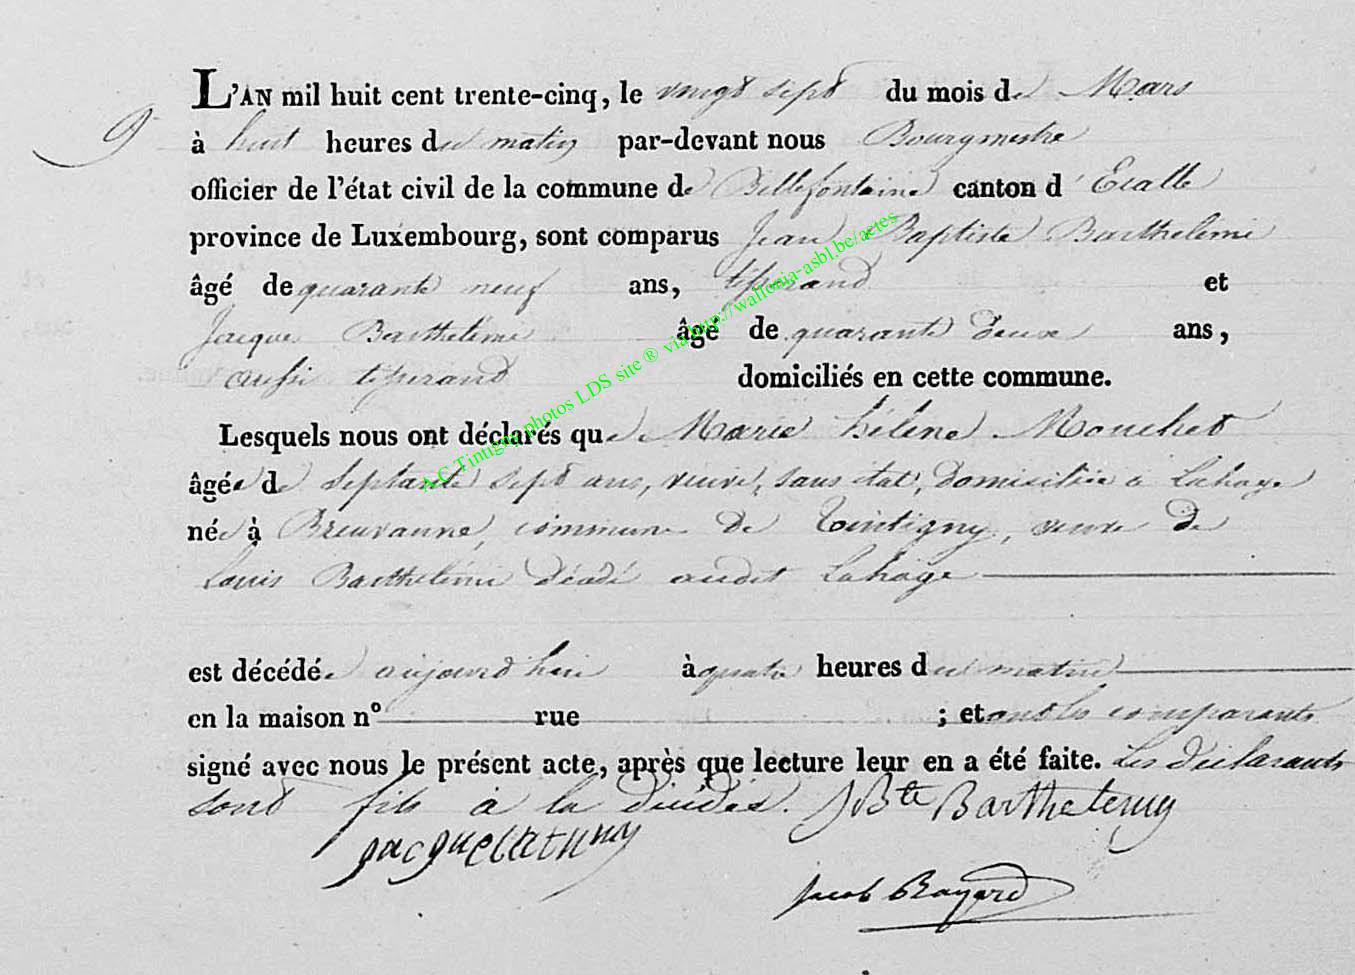 L'AN mil huit cent trente-cinq, le vingt sept du mois de Mars
9
à huit heures du matin par-devant nous Bourgmestre
officier de l'état civil de la commune de Bellefontaine canton d'Etalle
province de Luxembourg, sont comparus Jean Baptiste Barthelemi
âgé de quarante neuf ans, tisserand et
Jacque Barthélemi âgé de quarante deux ans,
aussi tisserand domiciliés en cette commune.
Lesquels nous ont déclarés que Marie hélène Mouchet
âgée de septante sept ans, veuve, sans état, domiciliée à Lahage
née à Breuvanne, commune de Tintigny, veuve de
Louis Barthélémi décédé audit Lahage
est décédée aujourd'hui à quatre heures du matin
en la maison nº rue ; et ont les comparants
signé avec nous le présent acte, après que lecture leur en a été faite. Les déclarants
sont fils à la décédée. JBte Barthelemy
Jacob Bayard
A.C. Tintigny photos LDS site ® via http://wallonia-asbl.be/actes